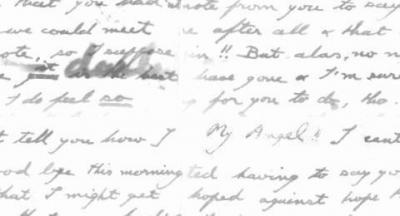 that you had note from you to say
we could meet e after all & that
note, so I suppose in !! But alas, no n
at in the have gone & I'm sure
I do feel so y for you to do, tho.
t tell you how I My Angel!! I cant
ood bye this morning ted having to say yo
that I might get hoped against hope